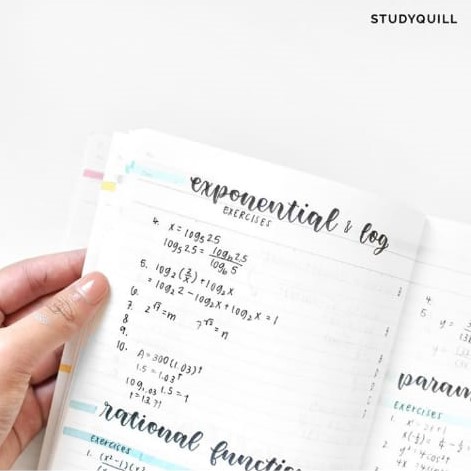 STUDYQUILL
exponential & log
EXERCISES
4. x = log₅25
log₅25 = log_b 25 / log_b 5
5. log₂(2/x) + log₂x
= log₂2 - log₂x + log₂x = 1
6.
7. 2^√3 = m 7^√3 = n
8
9.
10. A = 300(1.03)^t
1.5 = 1.03^t
log₁.₀₃ 1.5 = t
rational function
exercises
1. (x²-1)(x
4.
5. y =
param
exercises
1.
2.